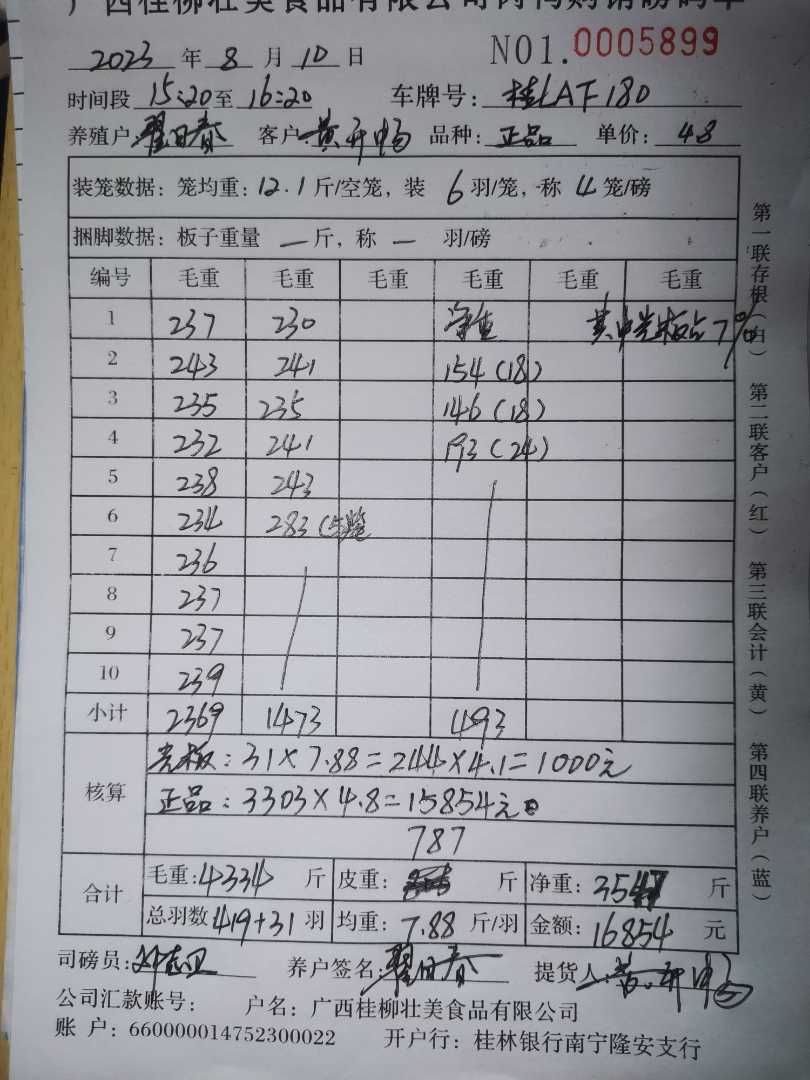 广西桂柳壮美食品有限公司肉鸭购销磅码单
2023 年 8 月 10 日 NO1.0005899
时间段 15:20至 16:20 车牌号: 桂LAF180
养殖户: 翟日春 客户: 黄开畅 品种: 正品 单价: 4.8
装笼数据: 笼均重: 12.1 斤/空笼, 装 6 羽/笼, 称 4 笼/磅
捆脚数据: 板子重量 — 斤, 称 — 羽/磅
编号 毛重 毛重 毛重 毛重 毛重 毛重
1 237 230 净重 其中光板占7%
2 243 241 154 (18)
3 235 235 146 (18)
4 232 241 193 (24)
5 238 243
6 234 283 (5笼
7 236
8 237
9 237
10 239
小计 2369 1473 493
核算 光板: 31×7.88=244×4.1=1000元
正品: 3303×4.8=15854元
787
合计 毛重: 4334 斤 皮重: 斤 净重: 3547 斤
总羽数 419+31 羽 均重: 7.88 斤/羽 金额: 16854 元
司磅员: 养户签名: 翟日春 提货人: 黄开畅
公司汇款账号: 户名: 广西桂柳壮美食品有限公司
账 户: 660000014752300022 开户行: 桂林银行南宁隆安支行
第一联存根(白) 第二联客户(红) 第三联会计(黄) 第四联养户(蓝)